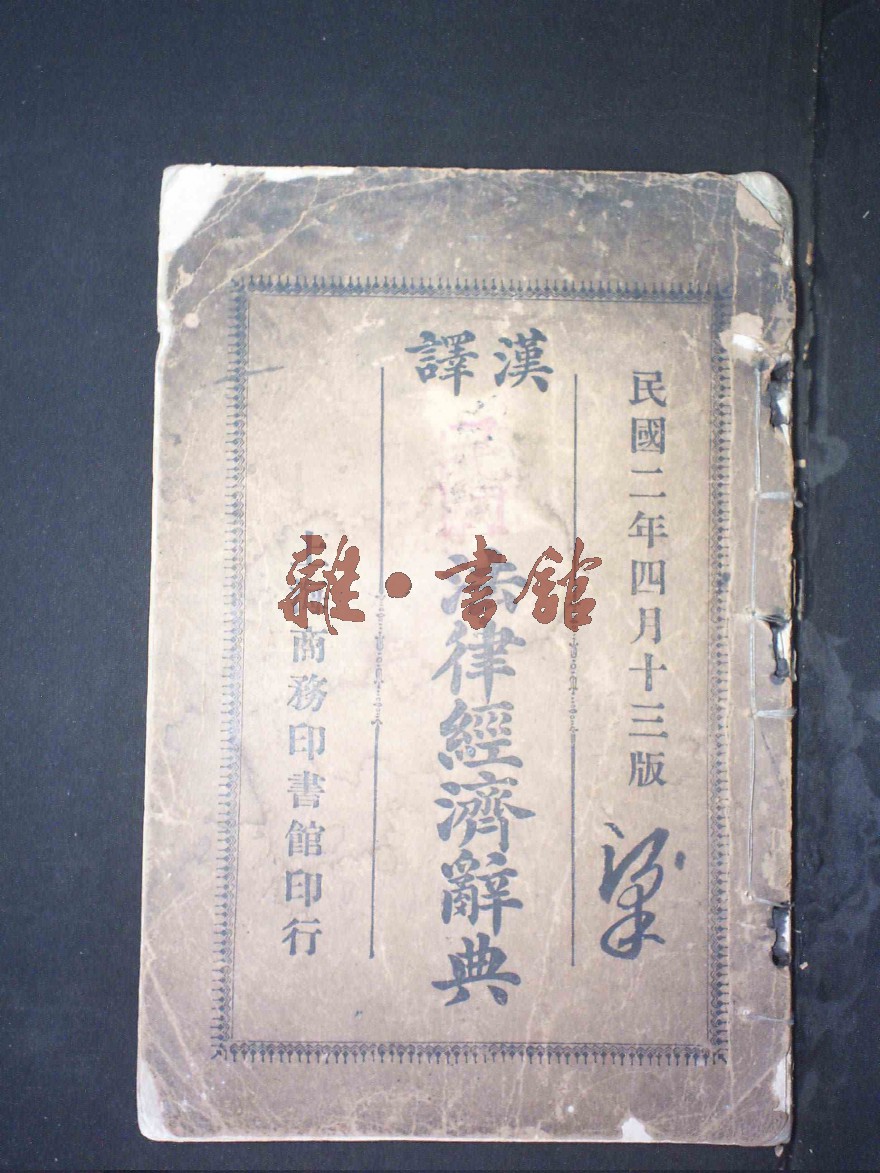 民國二年四月十三版
漢譯
法律經濟辭典
商務印書館印行
雜·書館